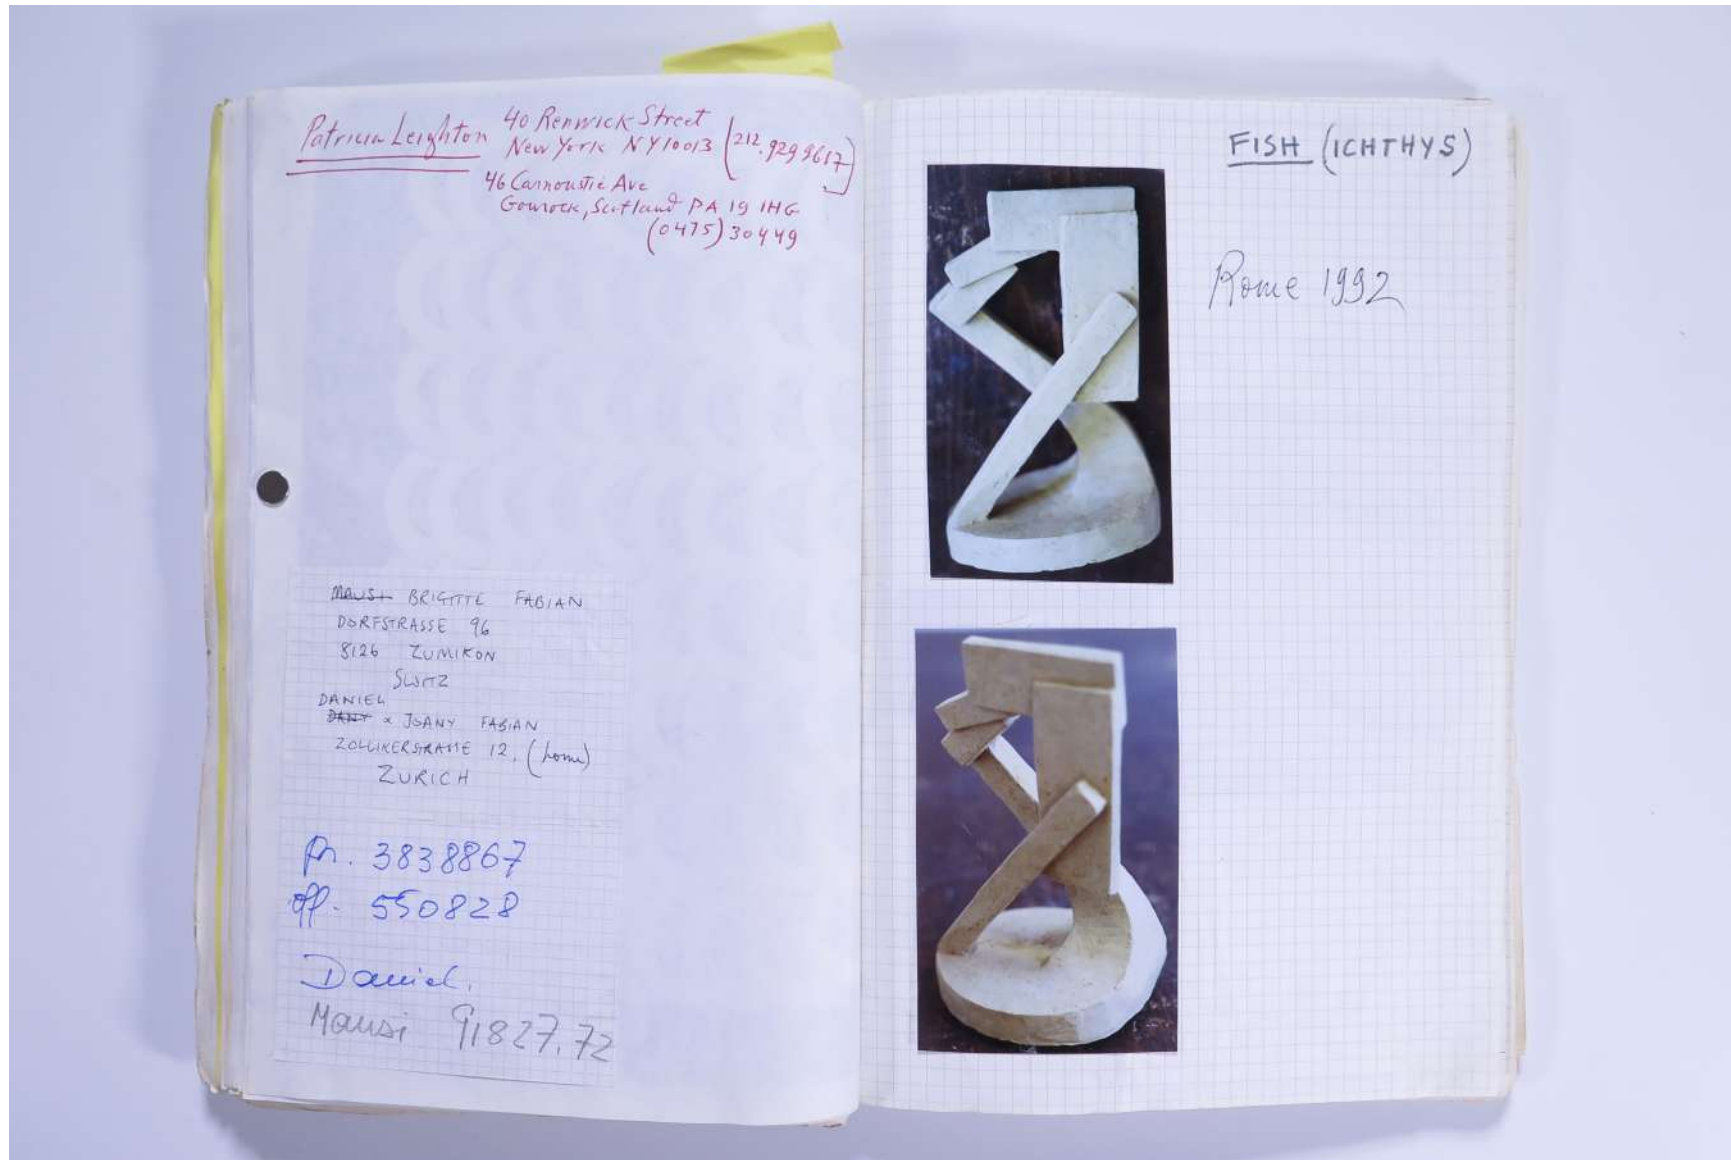 Patricia Leighton
40 Renwick Street
New York NY 10013 (212.929 9617)
46 Carnoustie Ave
Gourock, Scotland PA 19 1HG
(0475) 30449
MAUSI BRIGITTE FABIAN
DORFSTRASSE 96
8126 ZUMIKON
SWITZ
DANIEL
DANY & JOANY FABIAN
ZOLLIKERSTRASSE 12, (home)
ZURICH
pr. 3838867
off. 550828
Daniel.
Mausi 91827.72
FISH (ICHTHYS)
Rome 1992